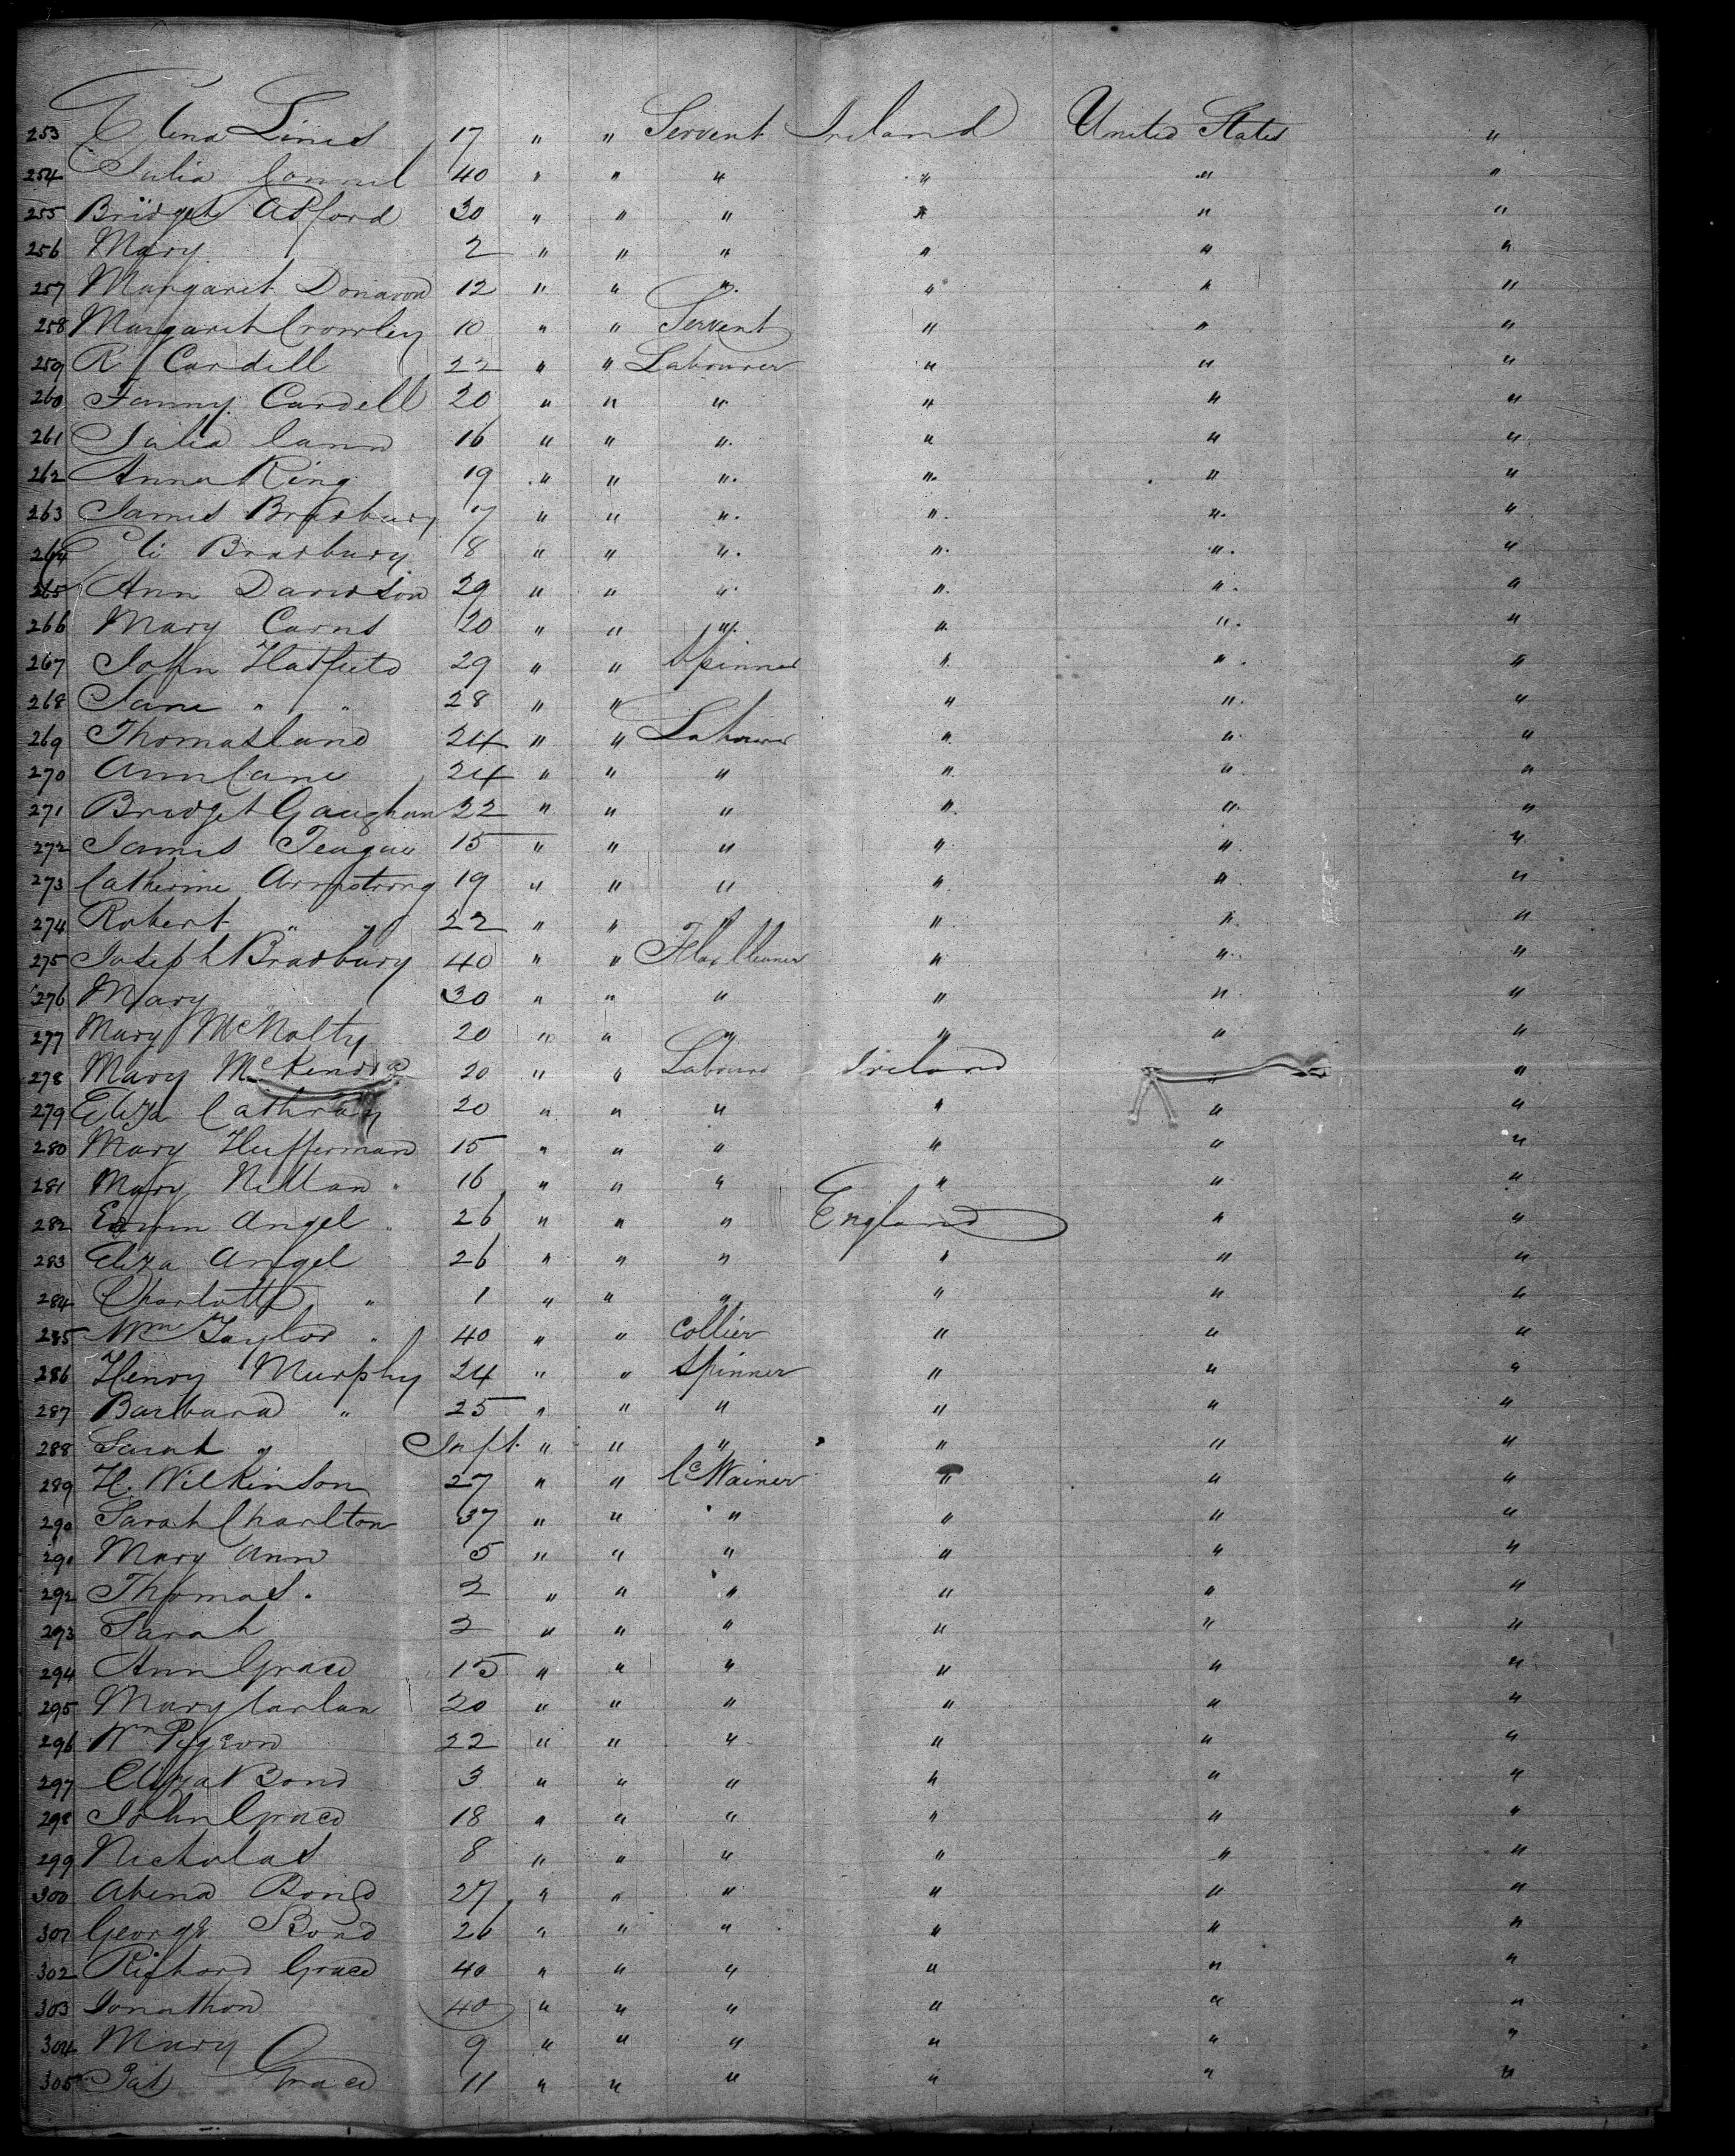 253 Lines 17 " " Servent Ireland United States "
254 Julia Connel 40 " " " " " "
255 Bridget Adford 30 " " " " " "
256 Mary 2 " " " " " "
257 Margaret Donavon 12 " " " " " "
258 Margaret Crowley 10 " " Servent " " "
259 R Cardill 22 " " Labourer " " "
260 Fanny Cardell 20 " " " " " "
261 Julia Cann 16 " " " " " "
262 Anna King 19 " " " " " "
263 James Bradbury 7 " " " " " "
264 Eli Bradbury 8 " " " " " "
265 Ann Davidson 29 " " " " " "
266 Mary Carns 20 " " " " " "
267 John Hadfield 29 " " Spinner " " "
268 Jane " " 28 " " " " "
269 Thomas Cane 24 " " Labourer " " "
270 Ann Cane 24 " " " " " "
271 Bridget Gaughan 22 " " " " " "
272 James Teague 15 " " " " " "
273 Catherine Armstrong 19 " " " " " "
274 Robert " " 22 " " " " " "
275 Joseph Bradbury 40 " " Flax Cleaner " " "
276 Mary 30 " " " " " "
277 Mary McNolty 20 " " " " " "
278 Mary 20 " " Labourer Ireland " "
279 Eliza Cathray 20 " " " " " "
280 Mary Hufferman 15 " " " " " "
281 Mary Nillan " 16 " " " " " "
282 Edwin Angel " 26 " " " England " "
283 Eliza Angel 26 " " " " " "
284 Charlotte " 1 " " " " " "
285 Wm Taylor " 40 " " Collier " " "
286 Henry Murphy 24 " " Spinner " " "
287 Barbara " 25 " " " " " "
288 Sarah " Inft. " " " " " "
289 H. Wilkinson 27 " " Cdwainer " " "
290 Sarah Charlton 37 " " " " " "
291 Mary Ann 5 " " " " " "
292 Thomas. 2 " " " " " "
293 Sarah 2 " " " " " "
294 Ann Grace 15 " " " " " "
295 Mary Carlan 20 " " " " " "
296 Wm Pigeon 22 " " " " " "
297 Eliza Bond 3 " " " " " "
298 John Grace 18 " " " " " "
299 Nicholas 8 " " " " " "
300 Abena Bond 27 " " " " " "
301 George Bond 26 " " " " " "
302 Richard Grace 40 " " " " " "
303 Jonathon 40 " " " " " "
304 Mary 9 " " " " " "
305 Pat Grace 11 " " " " " "